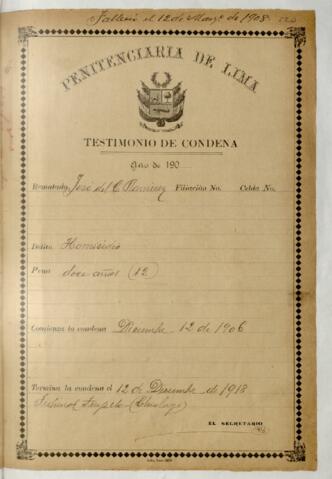 Falleció el 12 de Marzo de 1908
PENITENCIARIA DE LIMA
TESTIMONIO DE CONDENA
Año de 190
Rematado, José del C. Ramirez Filiación No. Celda No.
Delito Homicidio
Pena doce años (12)
Comienza la condena Diciembre 12 de 1906
Termina la condena el 12 de Diciembre de 1918
Tribunal (Chiclayo)
EL SECRETARIO